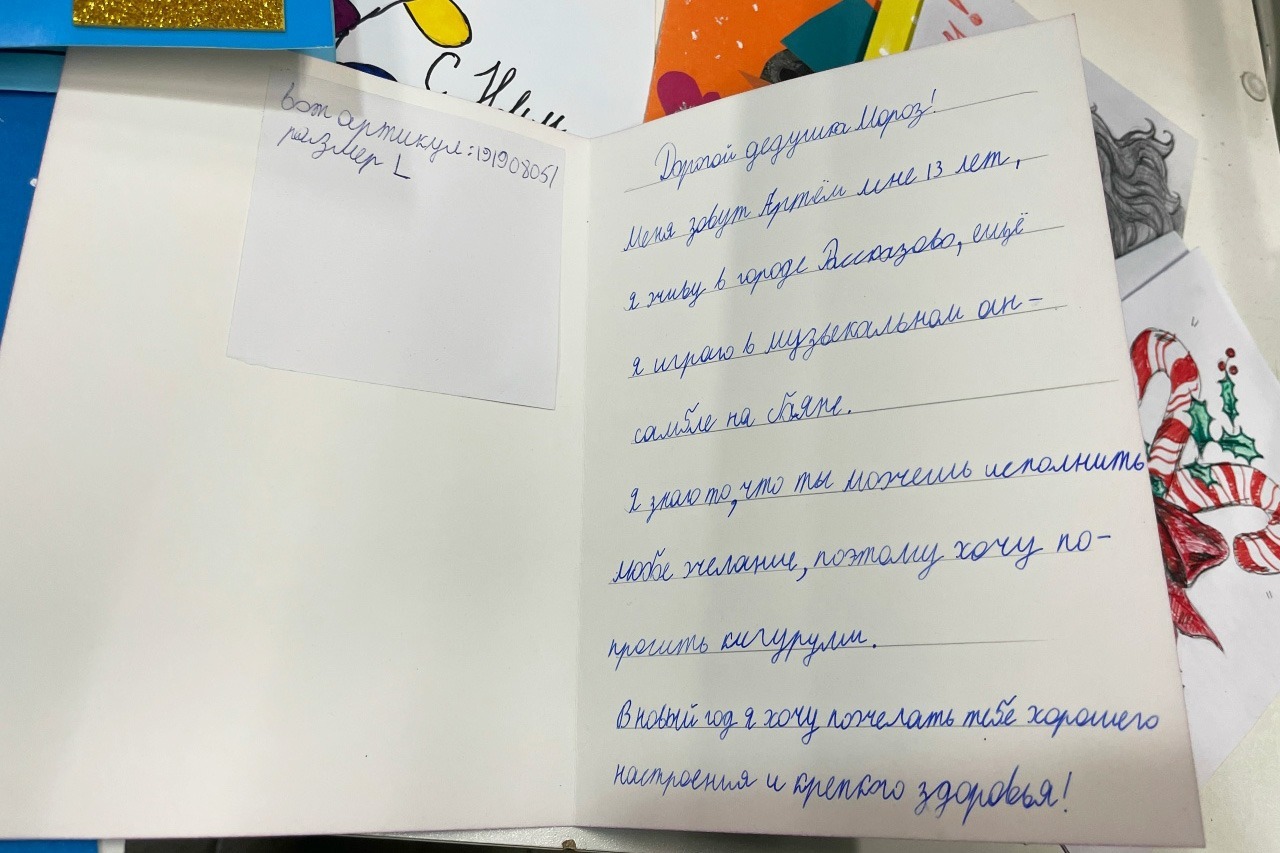 С Нов
м!
вот артикул: 191908051
размер L
Дорогой дедушка Мороз!
Меня зовут Артём мне 13 лет,
я живу в городе Рассказово, ещё
я играю в музыкальном ан-
самбле на баяне.
Я знаю то, что ты можешь исполнить
любое желание, поэтому хочу по-
просить кигуруми.
В новый год я хочу пожелать тебе хорошего
настроения и крепкого здоровья!